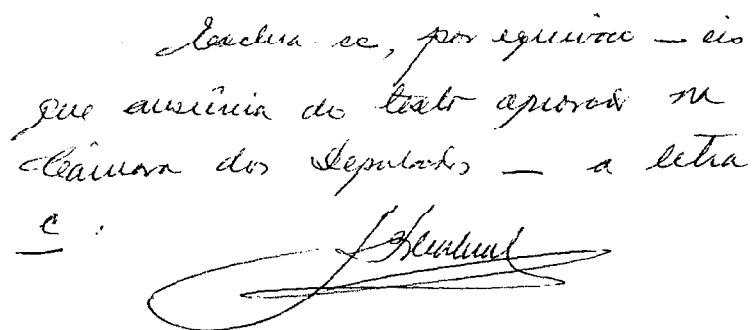 Exclua-se, por equívoco — eis
que ausência do texto aprovado na
Câmara dos Deputados — a letra
c.